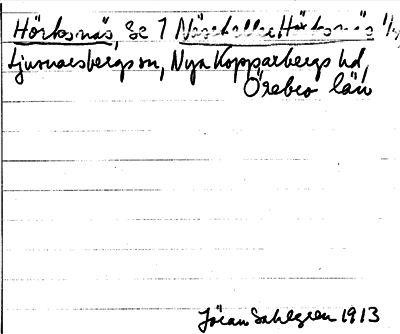 Hörksnäs, Se 1 Näset eller Hörksnäs 1/4
Ljusnarsbergs sn, Nya Kopparbergs hd,
Örebro län
Jöran Sahlgren 1913